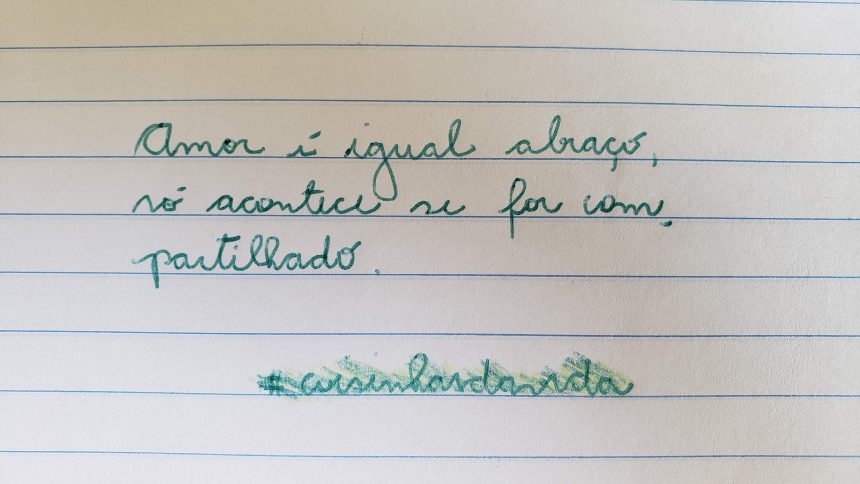 Amor é igual abraço,
só acontece se for com-
partilhado.
#coisinhasdavida